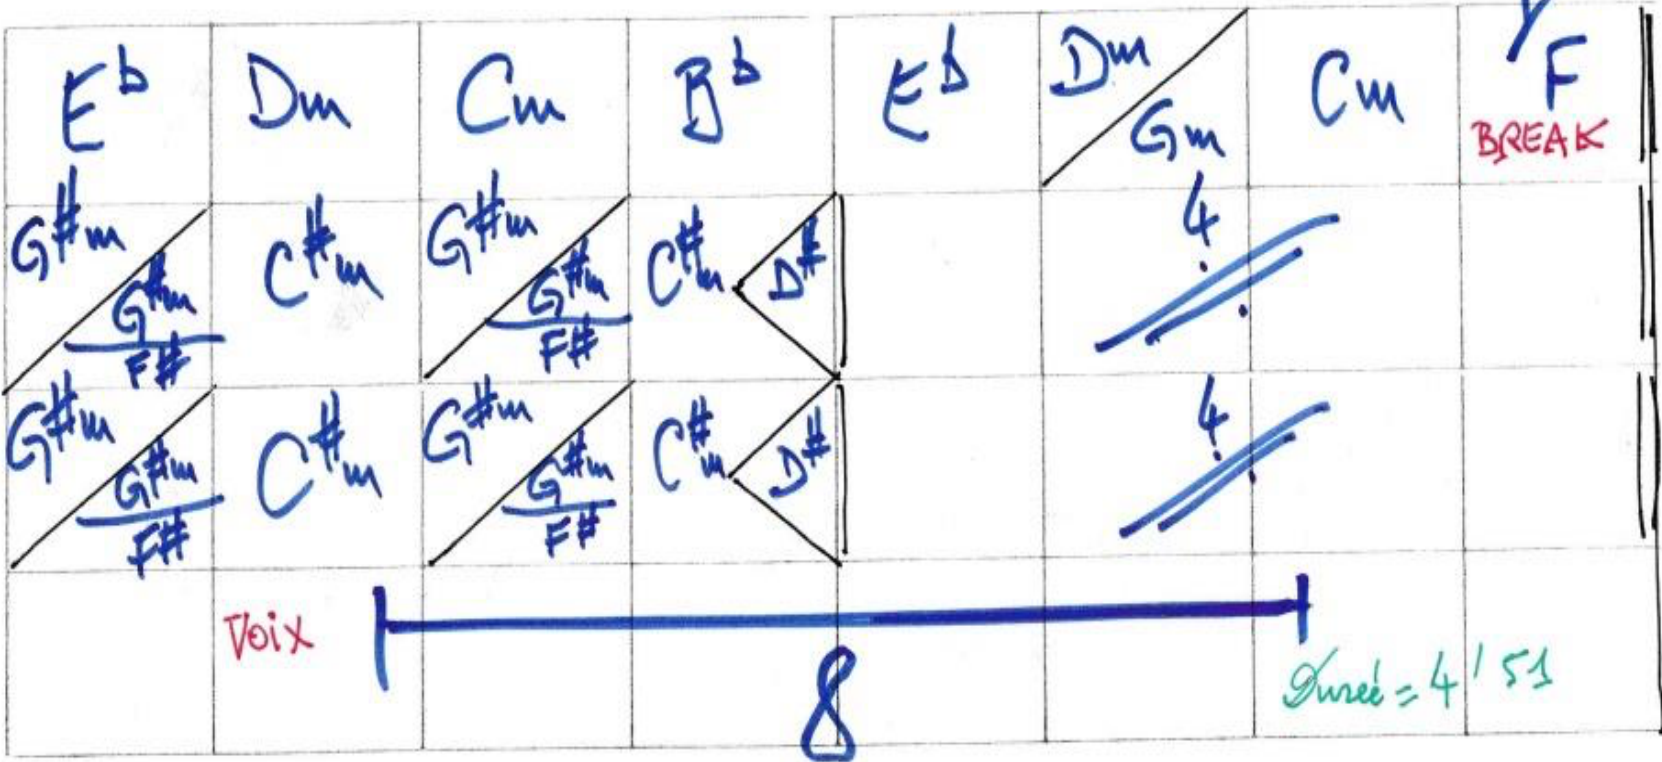 E♭ Dm Cm B♭ E♭ Dm Gm Cm F
BREAK
G#m G#m/F# C#m G#m G#m/F# C#m D# 4
G#m G#m/F# C#m G#m G#m/F# C#m D# 4
Voix 8 Durée = 4'51